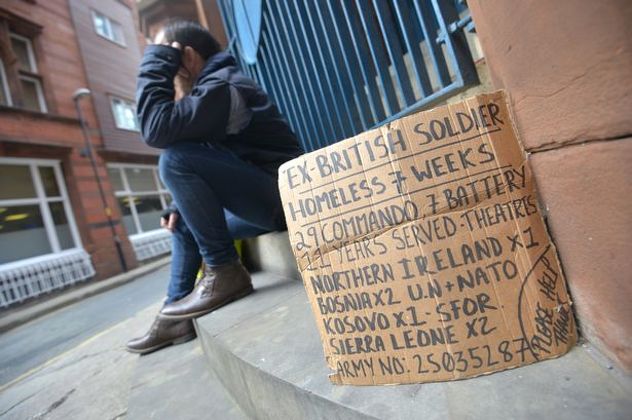 EX-BRITISH SOLDIER
HOMELESS 7 WEEKS
29 COMMANDO, 7 BATTERY
11 YEARS SERVED: THEATRES
NORTHERN IRELAND X1
BOSNIA X2 U.N + NATO
KOSOVO X1 - SFOR
SIERRA LEONE X2
ARMY NO: 25035287
PLEASE HELP
THANX